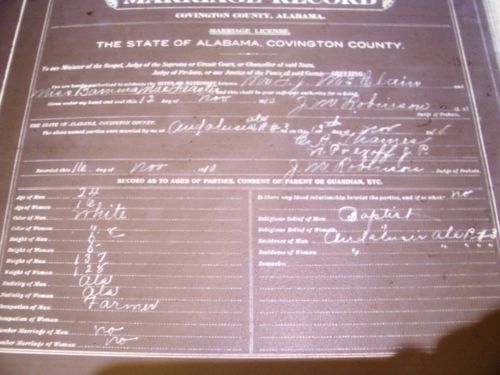 MARRIAGE RECORD
COVINGTON COUNTY, ALABAMA.
MARRIAGE LICENSE
THE STATE OF ALABAMA, COVINGTON COUNTY.
To any Minister of the Gospel, Judge of the Supreme or Circuit Court, or Chancellor of said State,
Judge of Probate, or any Justice of the Peace of said County GREETING:
You are hereby authorized to celebrate the Rites of Matrimony between
Miss and this shall be your sufficient authority for so doing.
Given under my hand and this 12 day of Nov J M Robinson
Judge of Probate.
THE STATE OF ALABAMA, COVINGTON COUNTY.
The above named parties were married by me at Andalusia Ala
J. P.
Recorded this 16 day of Nov J M Robinson Judge of Probate.
RECORD AS TO AGES OF PARTIES, CONSENT OF PARENT OR GUARDIAN, ETC.
Age of Man 24
Age of Woman 16
Color of Man White
Color of Woman "
Height of Man
Height of Woman
Weight of Man 137
Weight of Woman 128
Nativity of Man Ala
Nativity of Woman Ala
Occupation of Man Farmer
Occupation of Woman
Number Marriage of Man no
Number Marriage of Woman no
Is there any blood relationship between the parties, and if so what? no
Religious Belief of Man Baptist
Religious Belief of Woman "
Residence of Man Andalusia Ala
Residence of Woman "
Remarks